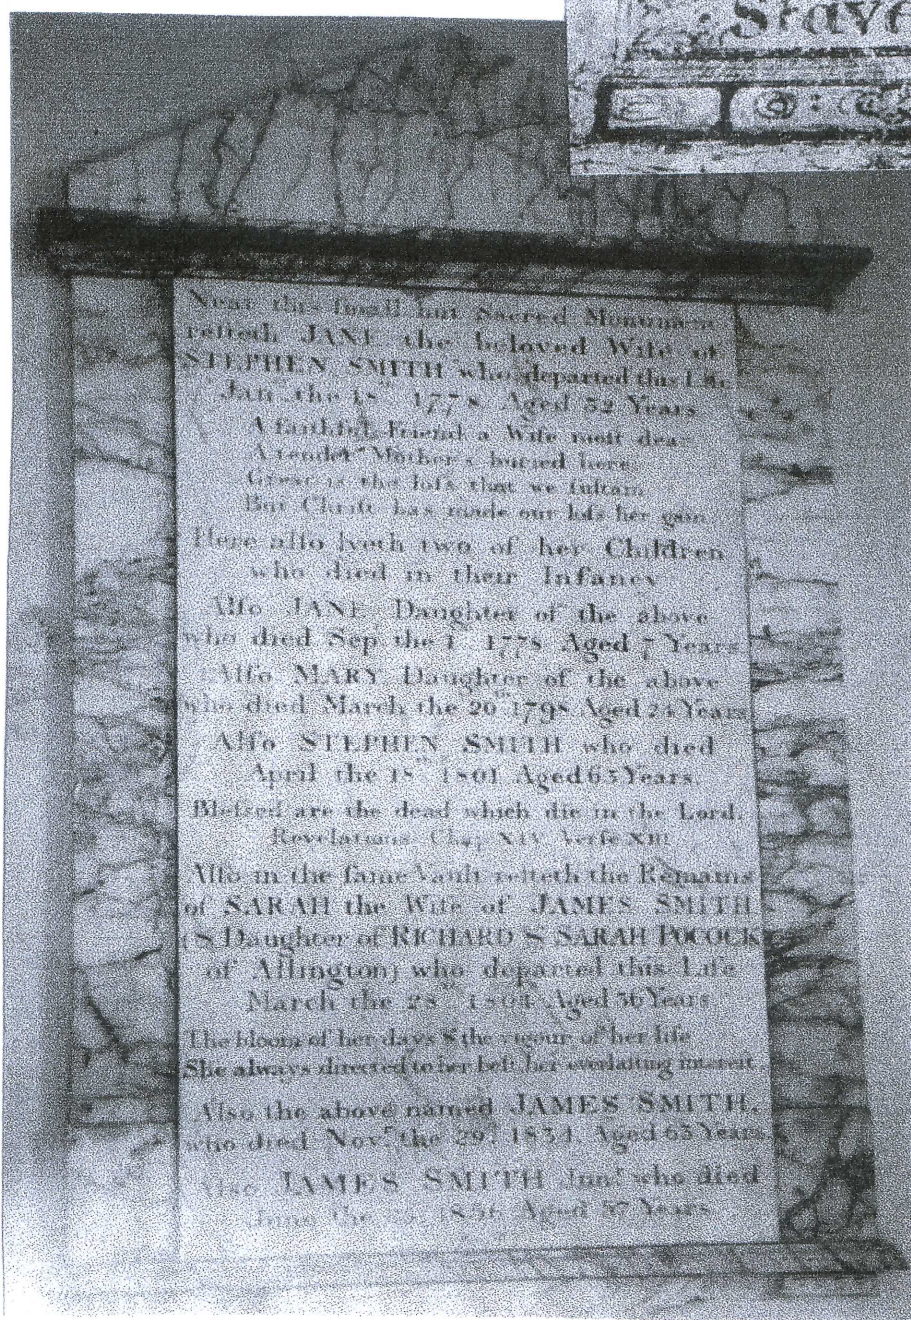 Stave
Near this ſmall but Sacred Monument
reſteth JANE the beloved Wife of
STEPHEN SMITH who departed this Life
Janry the 18th 1778 Aged 32 Years
A faithful Friend a Wife moſt dear
A tender Mother's buried here
Great is the loſs that we ſuſtain
But Chriſt has made our loſs her gain
Here alſo lyeth two of her Children
who died in their Infancy
Alſo JANE Daughter of the above
who died Sepr the 1st 1778 Aged 7 Years
Alſo MARY Daughter of the above
who died March the 20th 1798 Aged 24 Years
Alſo STEPHEN SMITH who died
April the 18th 1801 Aged 63 Years.
Bleſsed are the dead which die in the Lord.
Revelations Chap XIV Verſe XIII
Alſo in the ſame Vault reſteth the Remains
of SARAH the Wife of JAMES SMITH
(& Daughter of RICHARD & SARAH POCOCK
of Allington) who departed this Life
March the 28th 1804 Aged 36 Years
The bloom of her days & the vigour of her life
She always directed to her beſt her everlaſting intereſt.
Also the above named JAMES SMITH,
who died Novr the 29th 1834. Aged 63 Years
Also JAMES SMITH Junr who died
June the 1836 Aged 37 Years